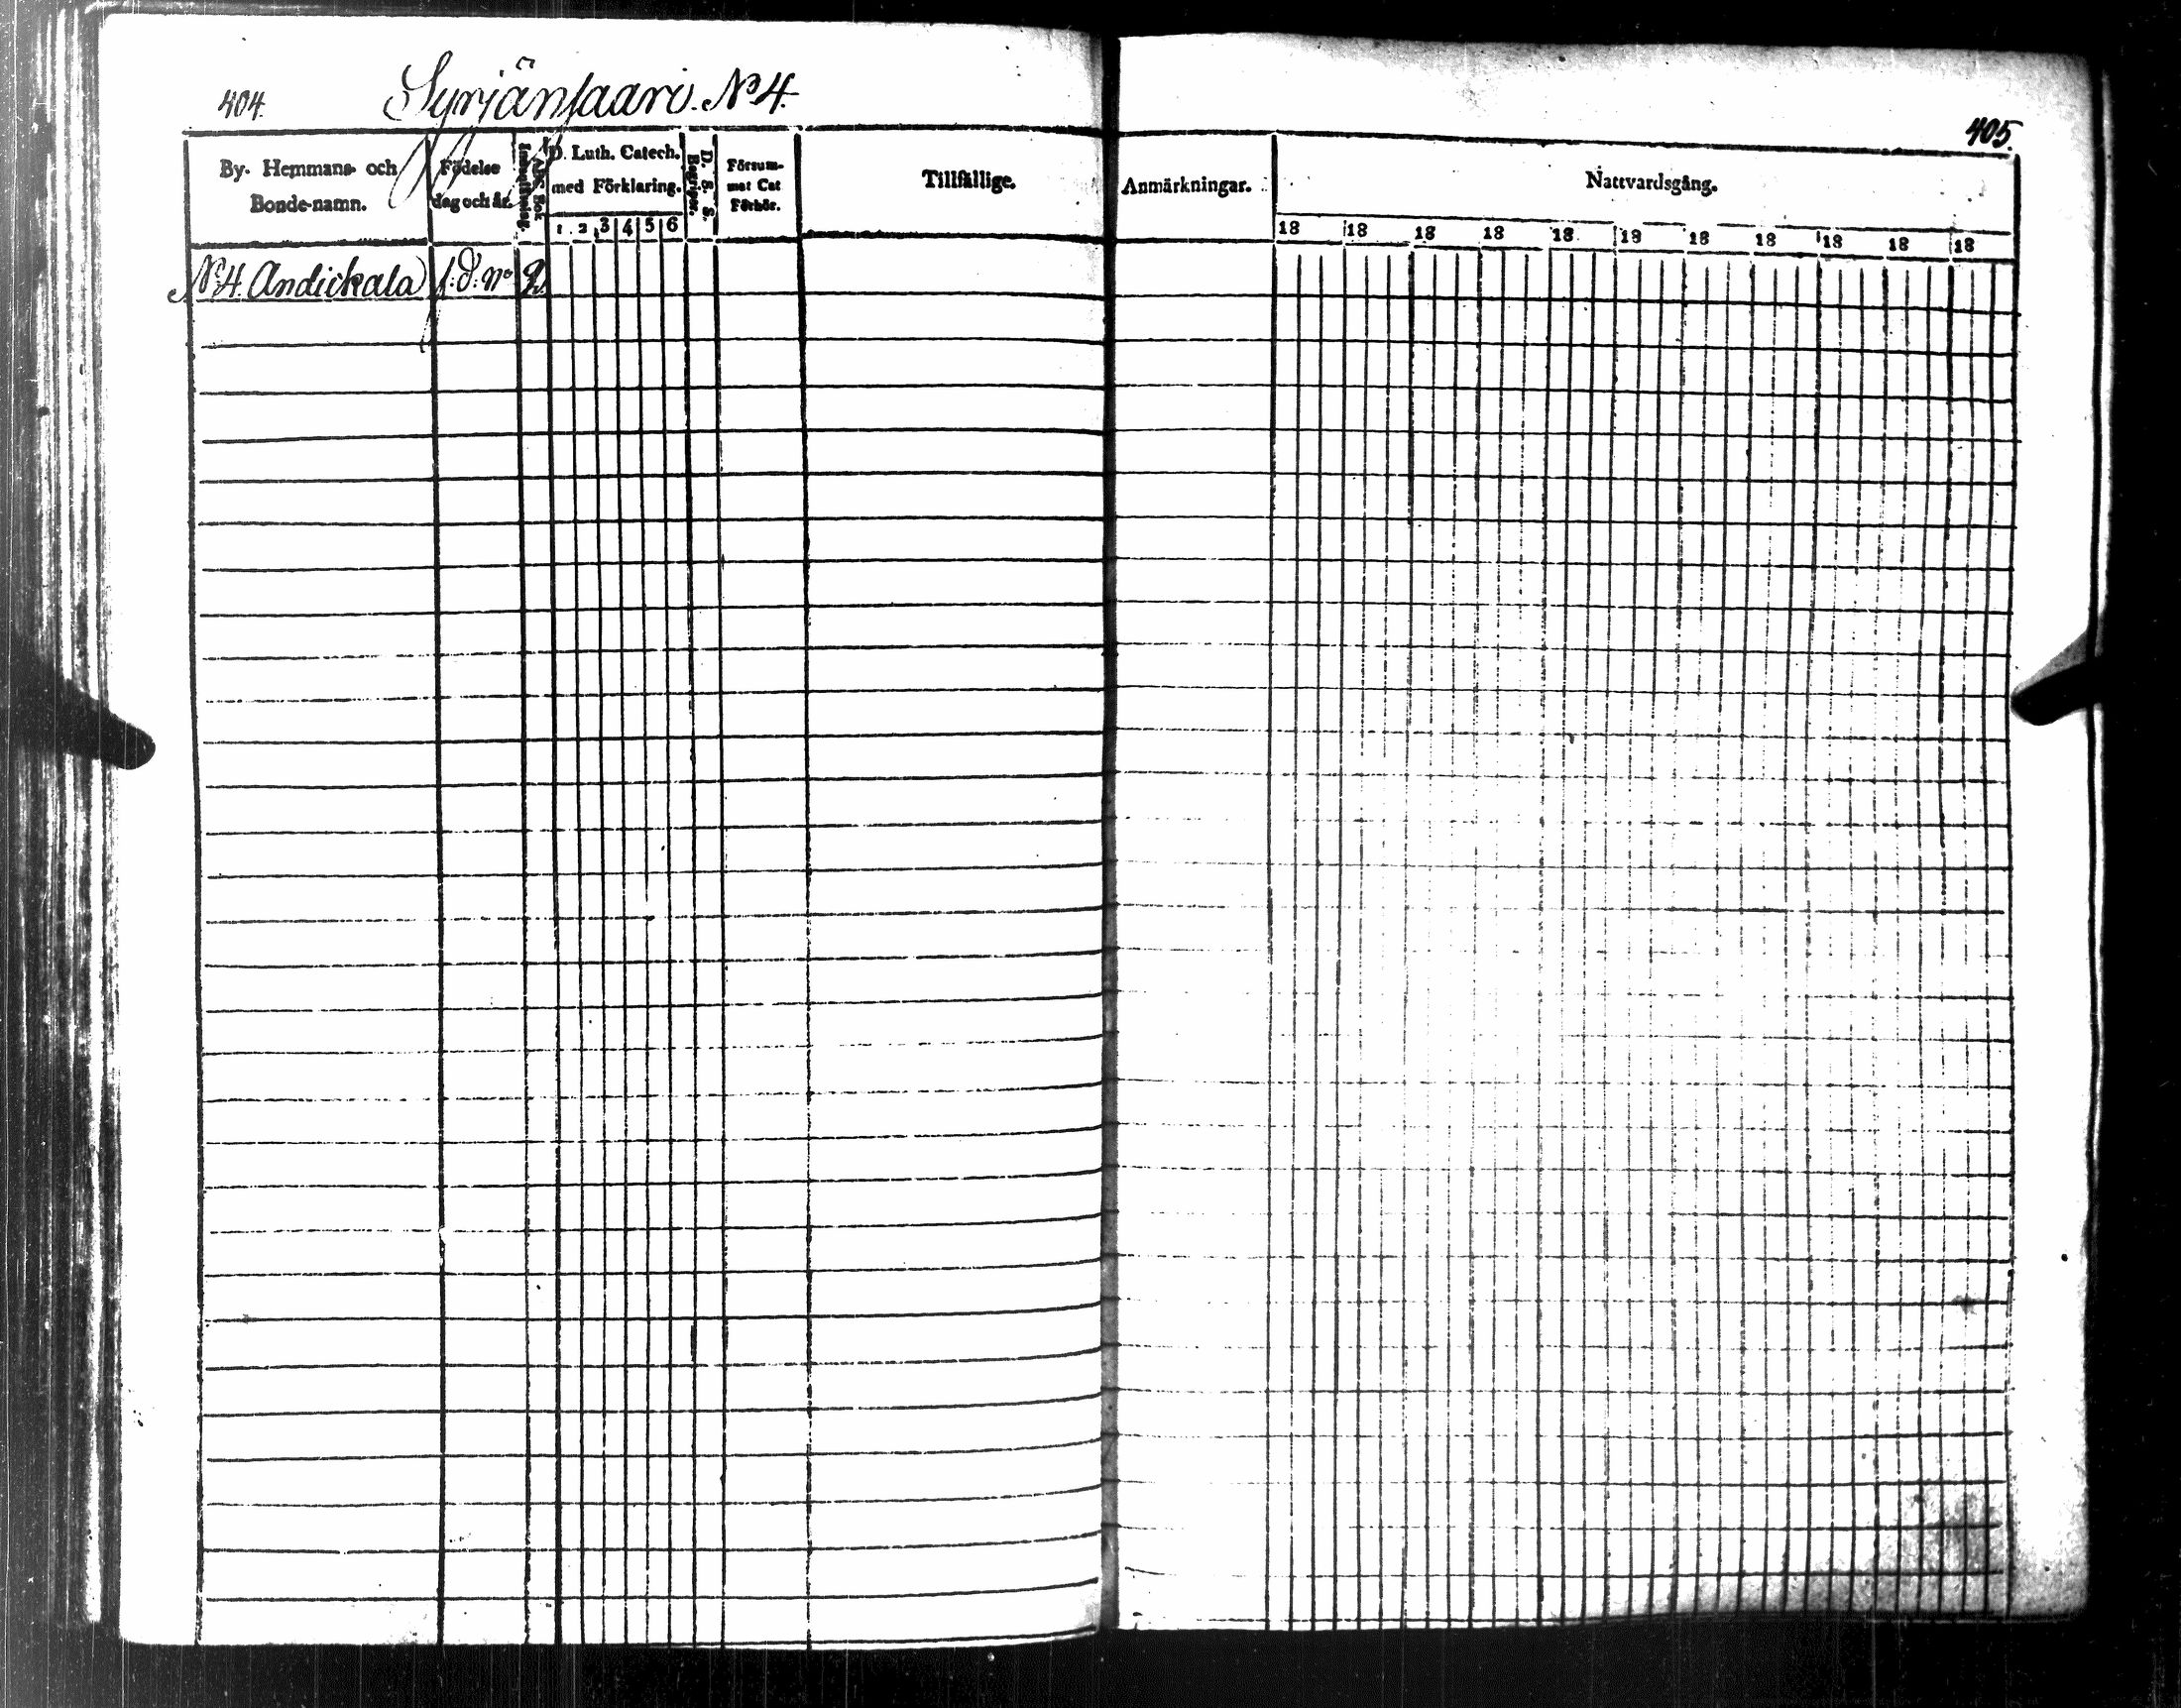 404. Syrjänsaari. No 4.
405.
By- Hemmans- och Bonde-namn.
Födelse dag och år.
A B C Bok
Innantläsning.
D. Luth. Catech. med Förklaring.
1 2 3 4 5 6
D. S. S.
Begriper.
Försum- mat Cat Förhör.
Tillfällige.
Anmärkningar.
Nattvardsgång.
18 18 18 18 18 18 18 18 18 18 18
No 4. Andickala